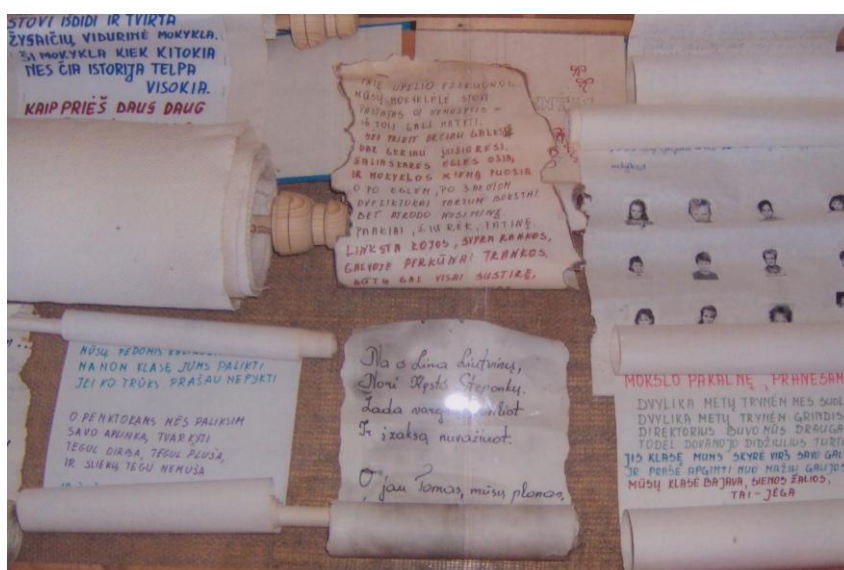 STOVI IŠDIDI IR TVIRTA
ŽYGAIČIŲ VIDURINĖ MOKYKLA.
ŠI MOKYKLA KIEK KITOKIA
NES ČIA ISTORIJA TELPA
VISOKIA.
KAIP PRIEŠ DAUG DAUG
PRIE UPELIO
MŪSŲ MOKYKLĖLĖ STOVI
IŠ TOLI GALI MATYTI.
DAR GERIAU ĮSIŽIŪRĖSI.
ŽALIASKARĖS EGLĖS OŠIA,
IR MOKYKLOS KIEMĄ PUOŠIA
O PO EGLĖM, PO
DVEJETUKAI TARTUM
BET ATRODO NUSIMINĘ.
LINKSTA KOJOS, SVYRA RANKOS,
GALVOJE PERKŪNAI TRANKOS,
GAL VISAI SUSTIRĘ,
mokykloj
MŪSŲ
MANON KLASĘ JUMS PALIKTI
JEI KO TRŪKS PRAŠAU NEPYKTI
O PENKTOKAMS MĖS PALIKSIM
SAVO APUNKĄ, TVARKYTI
TEGUL DIRBA, TEGUL PLUŠA,
IR SLIEKŲ TEGU NEMUŠA
Na o Lina Liutvinų,
Nori Kęstis Steponkų.
Žada
Ir į zaksą nuvažiuot.
O jau Tomas, mūsų plonas,
MOKSLO PAKALNĘ, PRANEŠAM
DVYLIKA METŲ TRYNĖM MES SUOL
DVYLIKA METŲ TRYNĖM GRINDIS
DIREKTORIUS BUVO MŪS DRAUGA
TODĖL DOVANOJO DIDŽIULIUS TURTU
JIS KLASĘ MUMS SKYRĖ VIRŠ SAVO GAL
IR PRAŠĖ APGINTI NUO MAŽIŲ GALIJOS
MŪSŲ KLASĖ BAJAVA, SIENOS ŽALIOS,
TAI - JĖGA